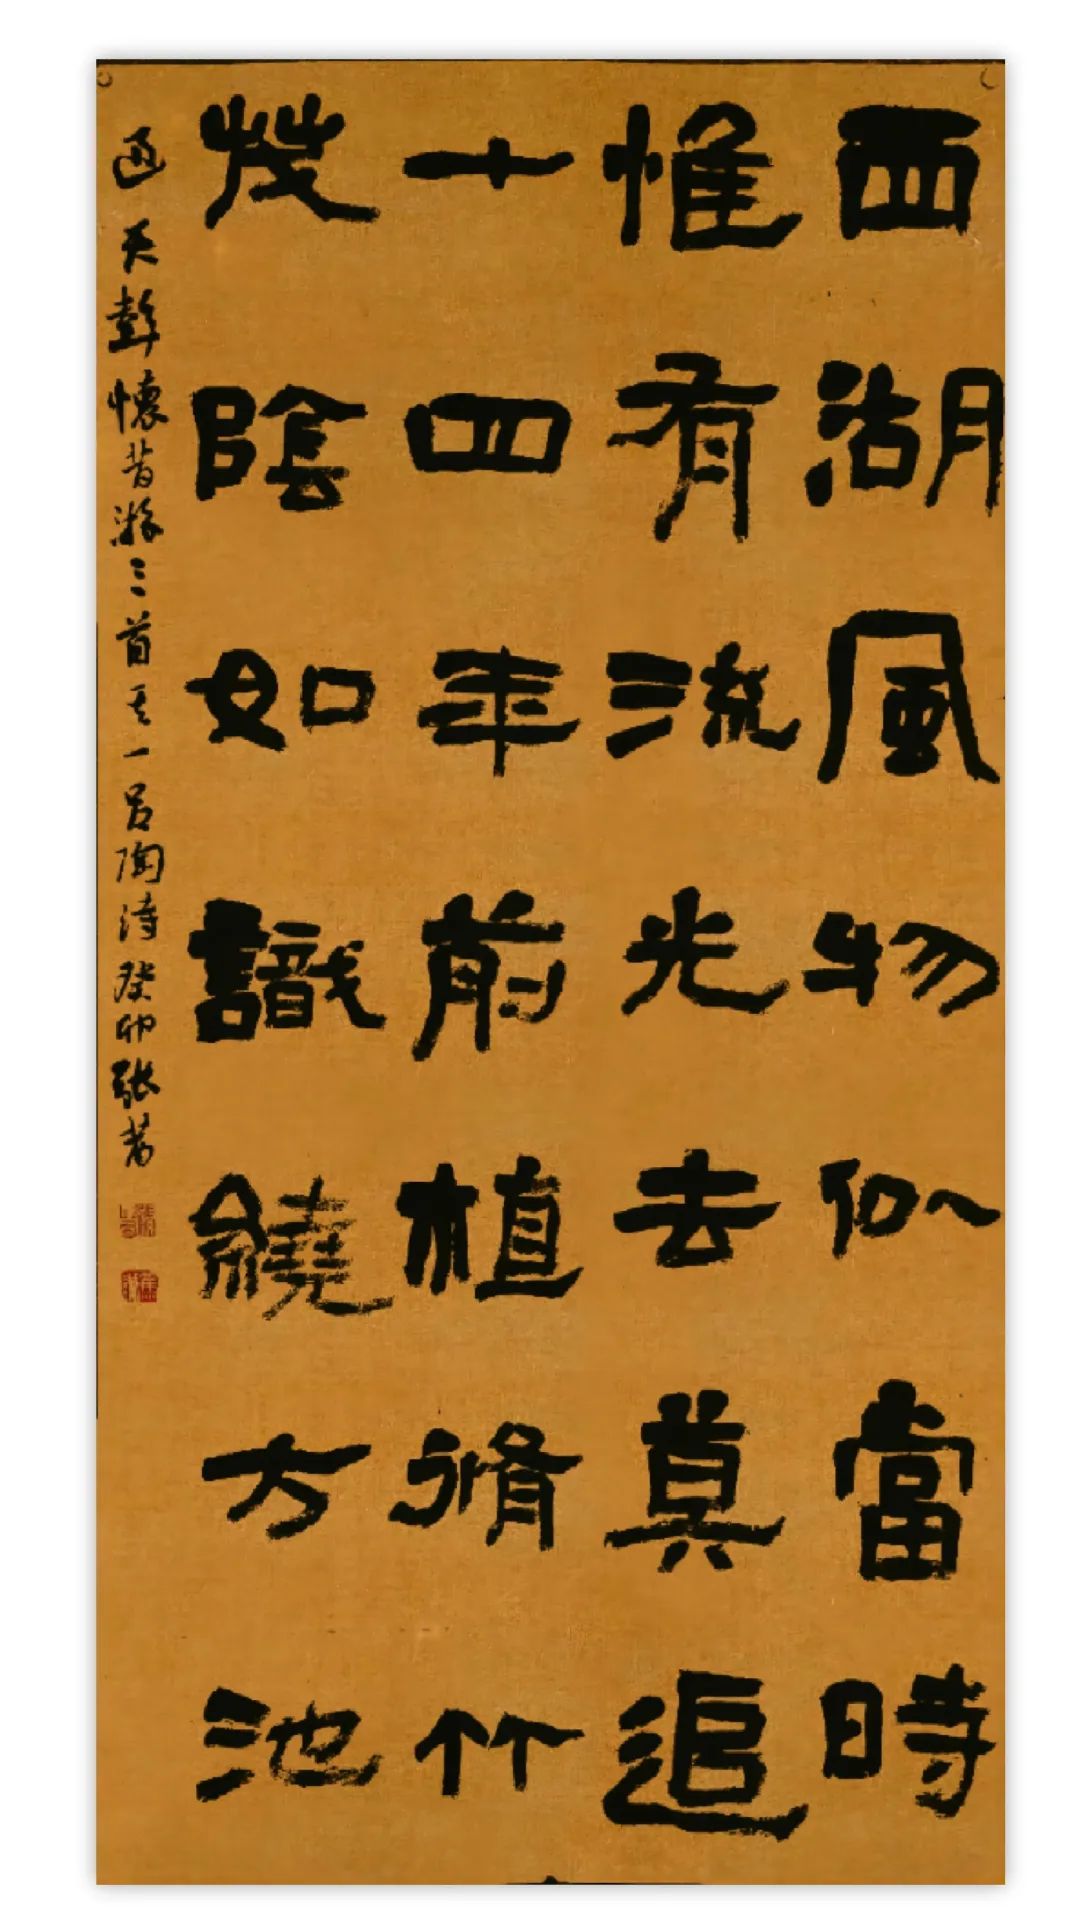 西湖風物似當時
惟有流光去莫追
十四年前植脩竹
茂陰如識繞方池
過天彭懷昔游三首其一呂陶詩癸卯張